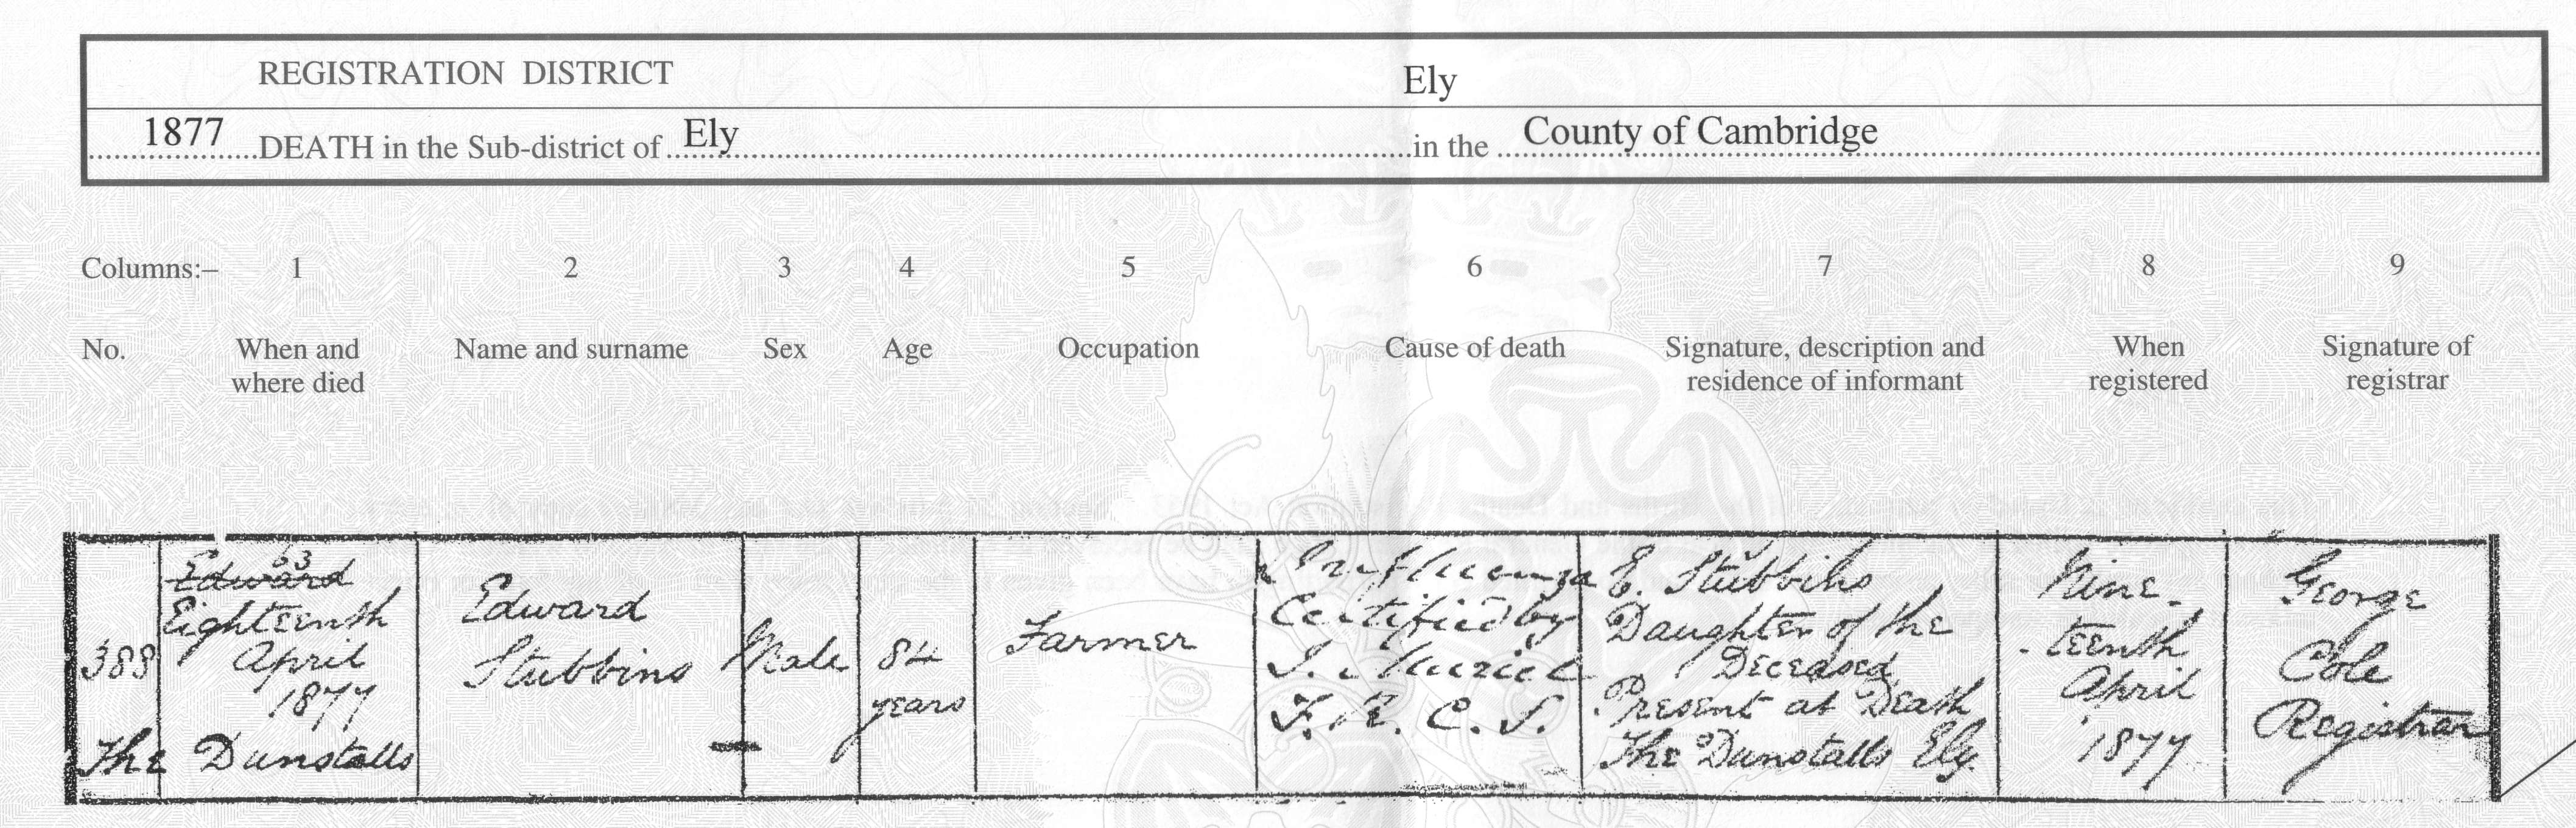 REGISTRATION DISTRICT Ely
1877 DEATH in the Sub-district of Ely in the County of Cambridge
Columns:– 1 2 3 4 5 6 7 8 9
No. When and where died Name and surname Sex Age Occupation Cause of death Signature, description and residence of informant When registered Signature of registrar
388
63
Edward
Eighteenth
April
1877
The Dunstalls
Edward
Stubbins
Male
84
years
Farmer
Influenza
Certified by
J. Muriel
F. R. C. S.
E. Stubbins
Daughter of the
Deceased
Present at Death
The Dunstalls Ely
Nine-
-teenth
April
1877
George
Cole
Registrar